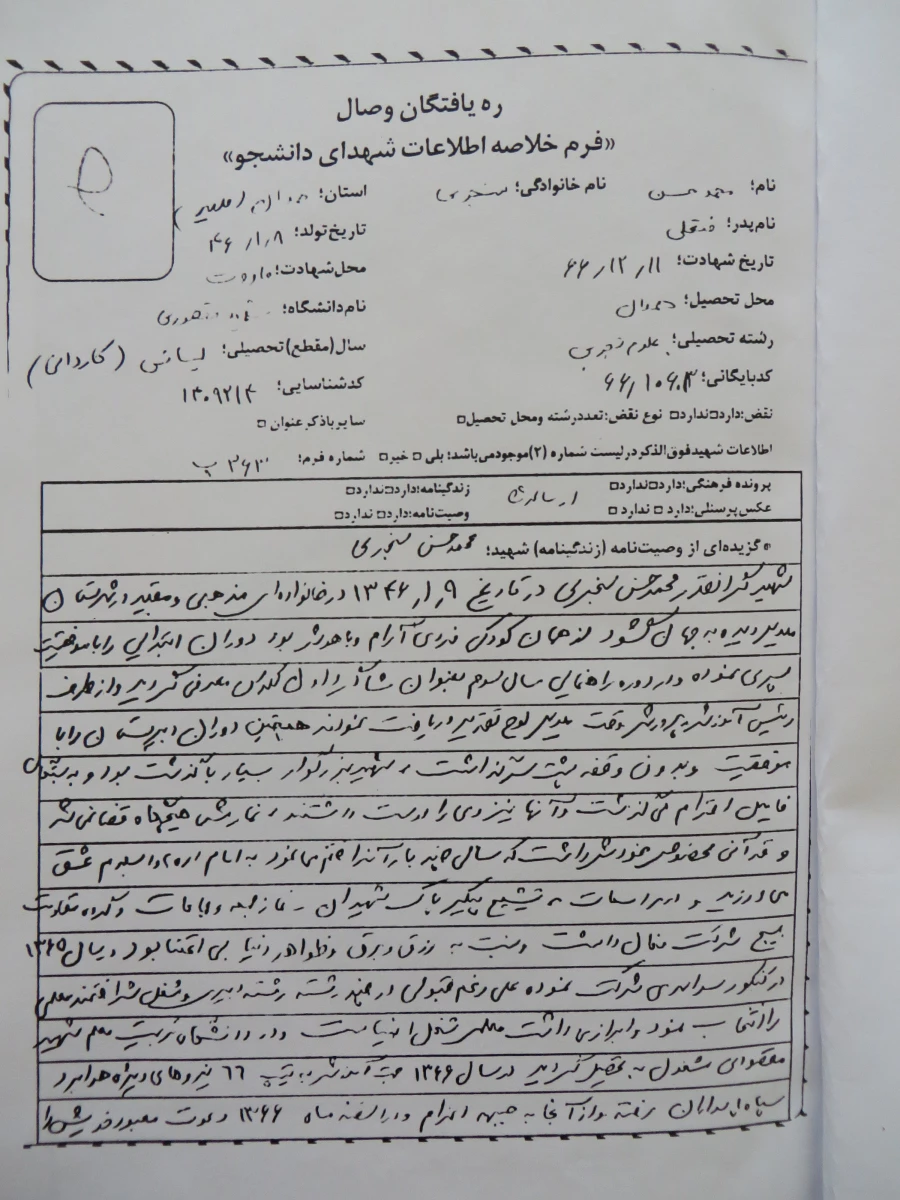 ره یافتگان وصال
«فرم خلاصه اطلاعات شهدای دانشجو»
نام؛ محمد حسن نام خانوادگی؛ سنجری استان؛
نام پدر؛ فتحعلی تاریخ تولد؛ ۴۶/۱/۸
تاریخ شهادت؛ ۶۶/۱۲/۱۱ محل شهادت؛ ماووت
محل تحصیل؛ همدان نام دانشگاه؛
رشته تحصیلی؛ علوم تجربی سال(مقطع)تحصیلی؛ لیسانس (کاردانی)
کدبایگانی؛ کدشناسایی؛ ۱۳۰۹۲۱۴
نقض؛دارد□ندارد□ نوع نقض؛تعددرشته ومحل تحصیل□ سایرباذکرعنوان □
اطلاعات شهیدفوق‌الذکردرلیست شماره (۲)موجودمی‌باشد؛ بلی □ خیر□ شماره فرم؛ ۳۶۳ ب
پرونده فرهنگی؛دارد□ندارد□ ارسال شد زندگینامه؛دارد□ندارد□
عکس‌پرسنلی؛دارد □ ندارد □ وصیت‌نامه؛دارد□ ندارد□
* گزیده‌ای از وصیت‌نامه (زندگینامه) شهید؛ محمد حسن سنجری
شهید گرانقدر محمد حسن سنجری در تاریخ ۱۳۴۶/۱/۹ در خانواده ای مذهبی و مقید در شهرستان
ملایر دیده به جهان گشود از همان کودکی فردی آرام و باهوش بود دوران ابتدایی را با موفقیت
سپری نموده و در دوره راهنمایی سال سوم بعنوان شاگرد اول کلاس معرفی گردید و از طرف
رئیس آموزش و پرورش وقت ملایر لوح تقدیر دریافت نمودند همچنین دوران دبیرستان را با
موفقیت و بدون وقفه پشت سر گذاشت، شهید بزرگوار بسیار با گذشت بود و به
فامیل احترام می گذاشت و آنها نیز وی را دوست داشتند، نمازش هیچگاه قضا نمی شد
و قرآنی مخصوص بخود داشت که سالی چند بار آنرا ختم می نمود به امام امت عشق
می ورزید و در مراسمات تشییع پیکر پاک شهیدان - نماز جمعه و جماعات و گروه مقاومت
بسیج شرکت فعال داشت و نسبت به زرق و برق و ظواهر دنیا بی اعتنا بود در سال ۱۳۶۵
در کنکور سراسری شرکت نموده علی رغم قبولی در چند رشته رشته دبیری و شغل شرافتمند معلمی
را انتخاب نمود و ابراز می داشت معلمی شغل انبیاست و در دانشگاه تربیت معلم شهید
مقصودی مشغول به تحصیل گردید در سال ۱۳۶۶ جهت آموزش به تیپ ۶۶ نیروهای ویژه هوابرد
سپاه پاسداران رفته و از آنجا به جبهه اعزام و در اسفند ماه ۱۳۶۶ دعوت معبود خویش را